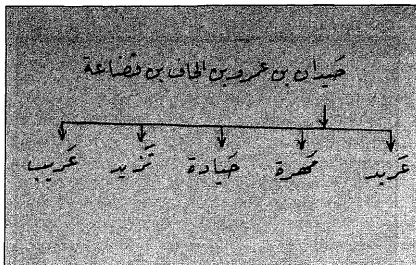 حَيدان بن عمرو بن الحاف بن قضاعة
عَريد مَهرة حَيادة تَزيد عَريب